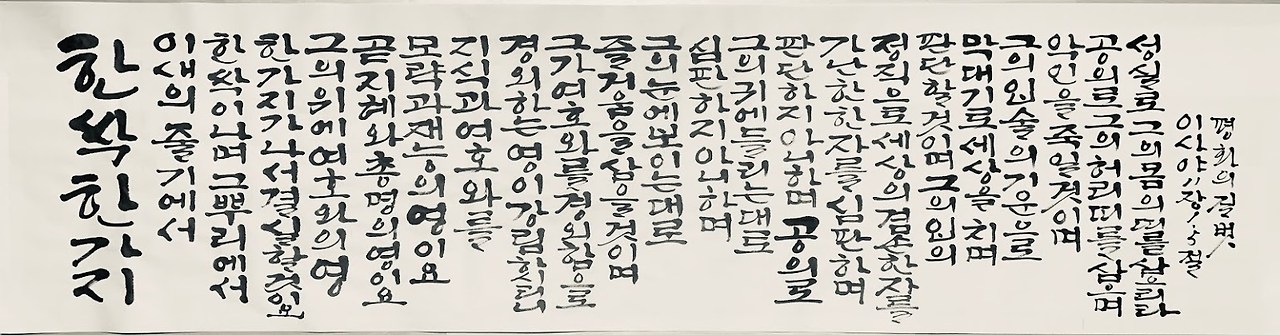 한싹한가지
이새의줄기에서
한싹이나며 그뿌리에서
한가지가나서결실할것이요
그의위에여호와의영
곧지혜와총명의영이요
모략과재능의영이요
지식과여호와를
경외하는영이강림하시리니
그가여호와를경외함으로
즐거움을삼을것이며
그의눈에보이는대로
심판하지아니하며
그의귀에들리는대로
판단하지아니하며 공의로
가난한한자를심판하며
정직으로세상의겸손한자를
판단할것이며 그의입의
막대기로세상을치며
그의입술의기운으로
악인을죽일것이며
공의로그의허리띠를삼으며
성실로그의몸의띠를삼으리라
이사야 11장
평화의